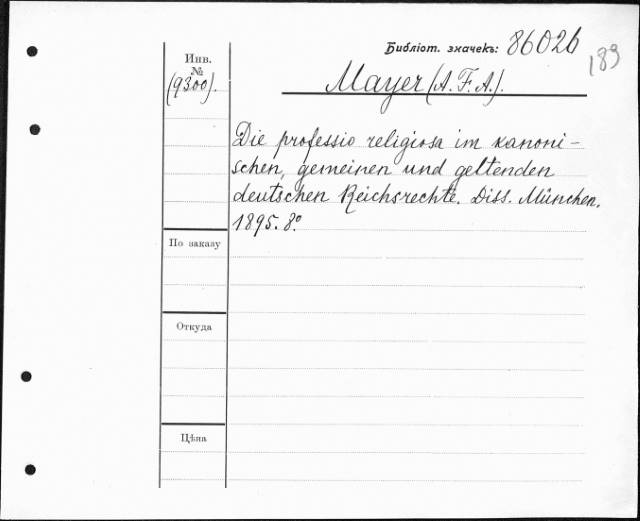 Библіот. значекъ: 86026
183
Инв.
№
(9300).
Mayer (A. F. A.).
Die professio religiosa im kanoni-
schen, gemeinen und geltenden
deutschen Reichsrechte. Diss. München.
1895. 8°.
По заказу
Откуда
Цѣна